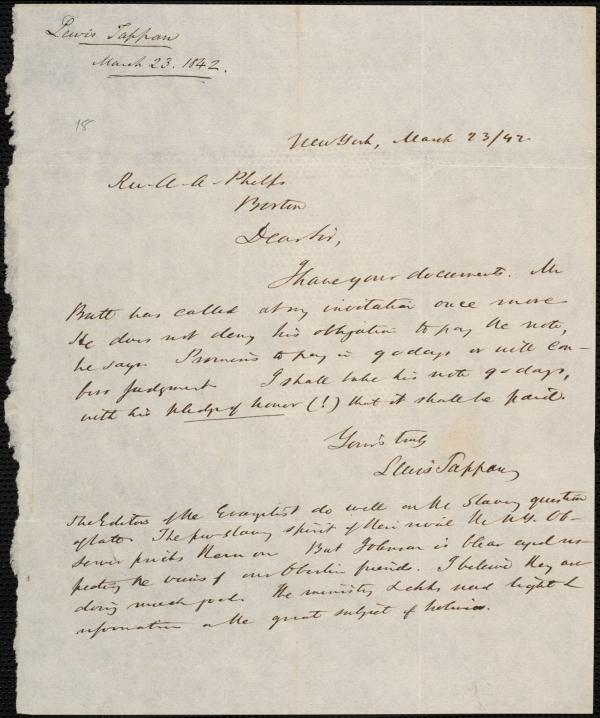 Lewis Tappan
March 23. 1842.
18
New York, March 23/42
Rev. A. A. Phelps
Boston
Dear Sir,
I have your documents. Mr
Butt has called at my invitation once more
He does not deny his obligation to pay the note,
he says. Promises to pay in 90 days or will con-
fess judgment. I shall take his note 90 days,
with his pledge of honor (!) that it shall be paid.
Yours truly
Lewis Tappan
The Editors of the Evangelist do well on the Slavery question
of late. The pro slavery spirit of their rival the N.Y. Ob-
server pricks them on. But Johnson is blear eyed res-
pecting the views of our Oberlin friends. I believe they are
doing much good. The ministry & chhs need light &
information on the great subject of holiness.